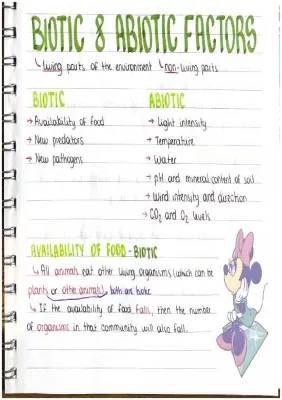 BIOTIC & ABIOTIC FACTORS
↳ living parts of the environment ↳ non-living parts
BIOTIC
→ Availability of food
→ New predators
→ New pathogens
ABIOTIC
→ Light intensity
→ Temperature
→ Water
→ pH and mineral content of soil
→ Wind intensity and direction
→ CO₂ and O₂ levels
AVAILABILITY OF FOOD - BIOTIC
↳ All animals eat other living organisms (which can be
plants or other animals) both are biotic
↳ If the availability of food falls, then the number
of organisms in that community will also fall.